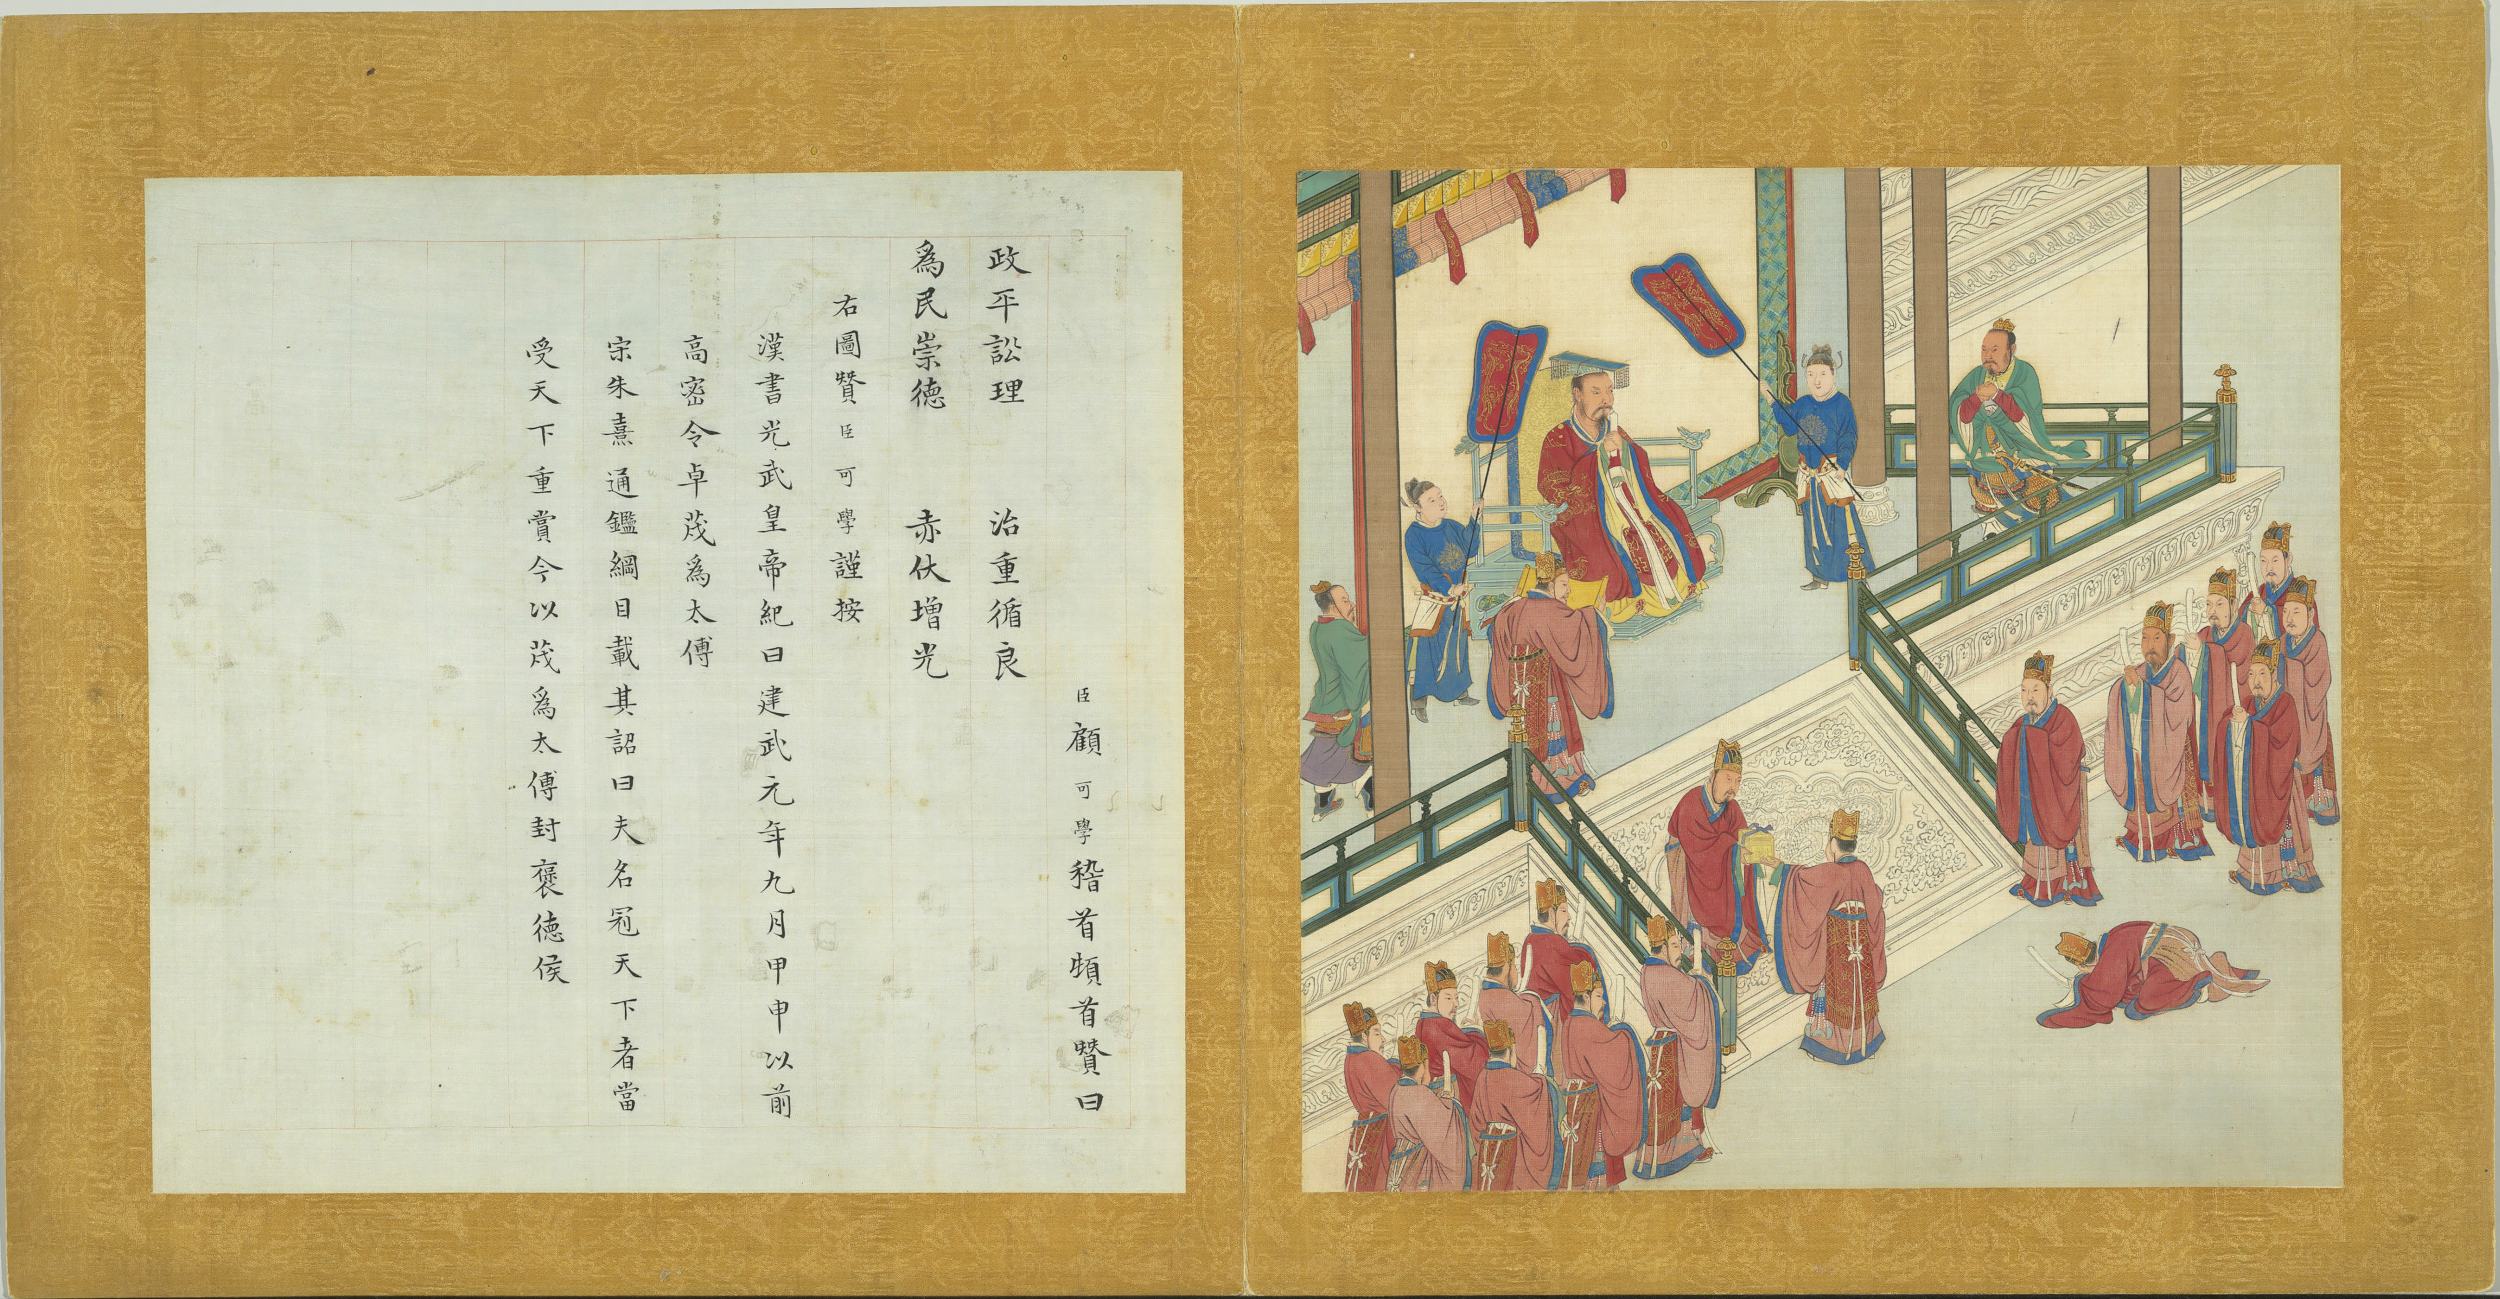 臣顧可學稽首頓首贊曰
政平訟理 治重循良
爲民崇德 赤伏增光
右圖贊臣可學謹按
漢書光武皇帝紀曰建武元年九月甲申以前
高密令卓茂爲太傅
宋朱熹通鑑綱目載其詔曰夫名冠天下者當
受天下重賞今以茂爲太傅封褒德侯